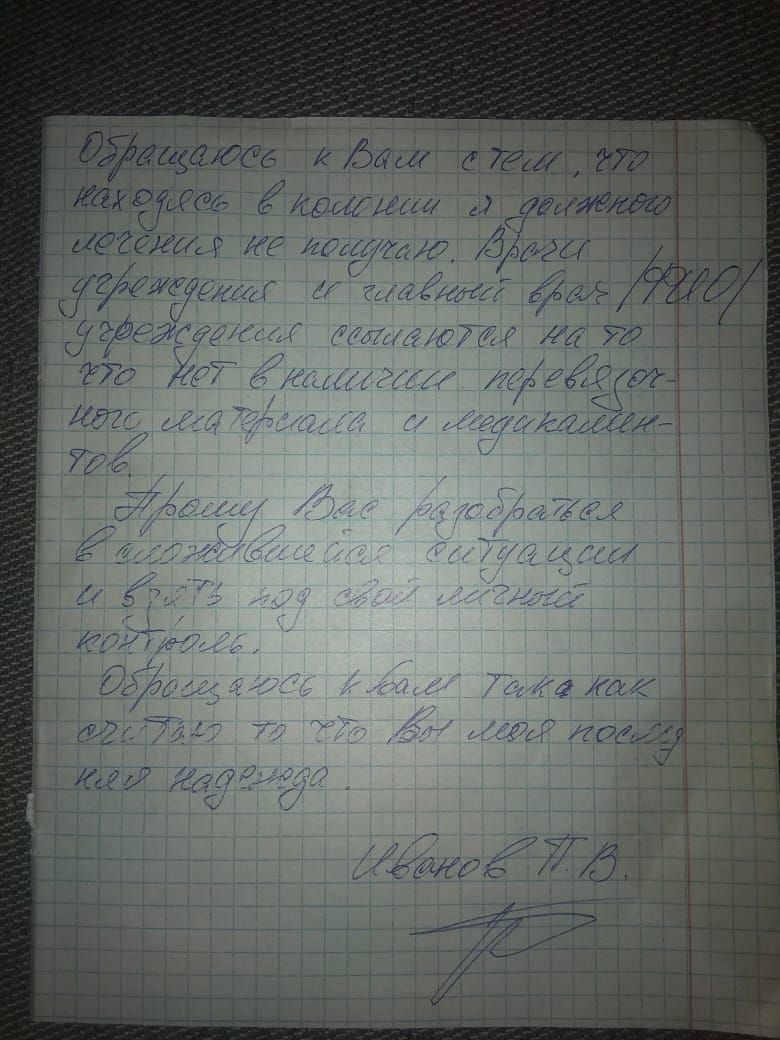 Обращаюсь к Вам с тем, что
находясь в колонии я должного
лечения не получаю. Врачи
учреждения и главный врач /ФИО/
учреждения ссылаются на то
что нет в наличии перевязоч-
ного материала и медикамен-
тов.
Прошу Вас разобраться
в сложившейся ситуации
и взять под свой личный
контроль.
Обращаюсь к вам так как
считаю то что Вы моя послед
няя надежда.
Иванов П.В.